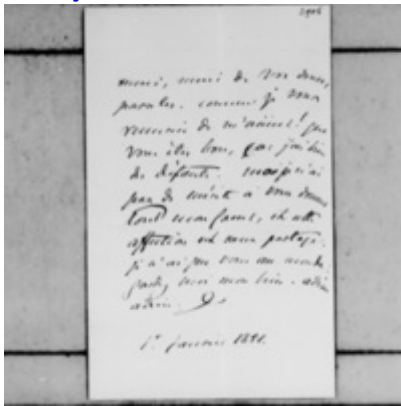 merci, merci de vos douces
paroles. comme je vous
remercie de m'aimer! que
vous êtes bon, car j'ai bien
des défauts. mais je n'ai
pas de mérite à vous donner
tout mon
affection est sans partage.
je n'ai que vous au monde.
gardez moi mon bien - adieu
adieu.
1er janvier 1891.